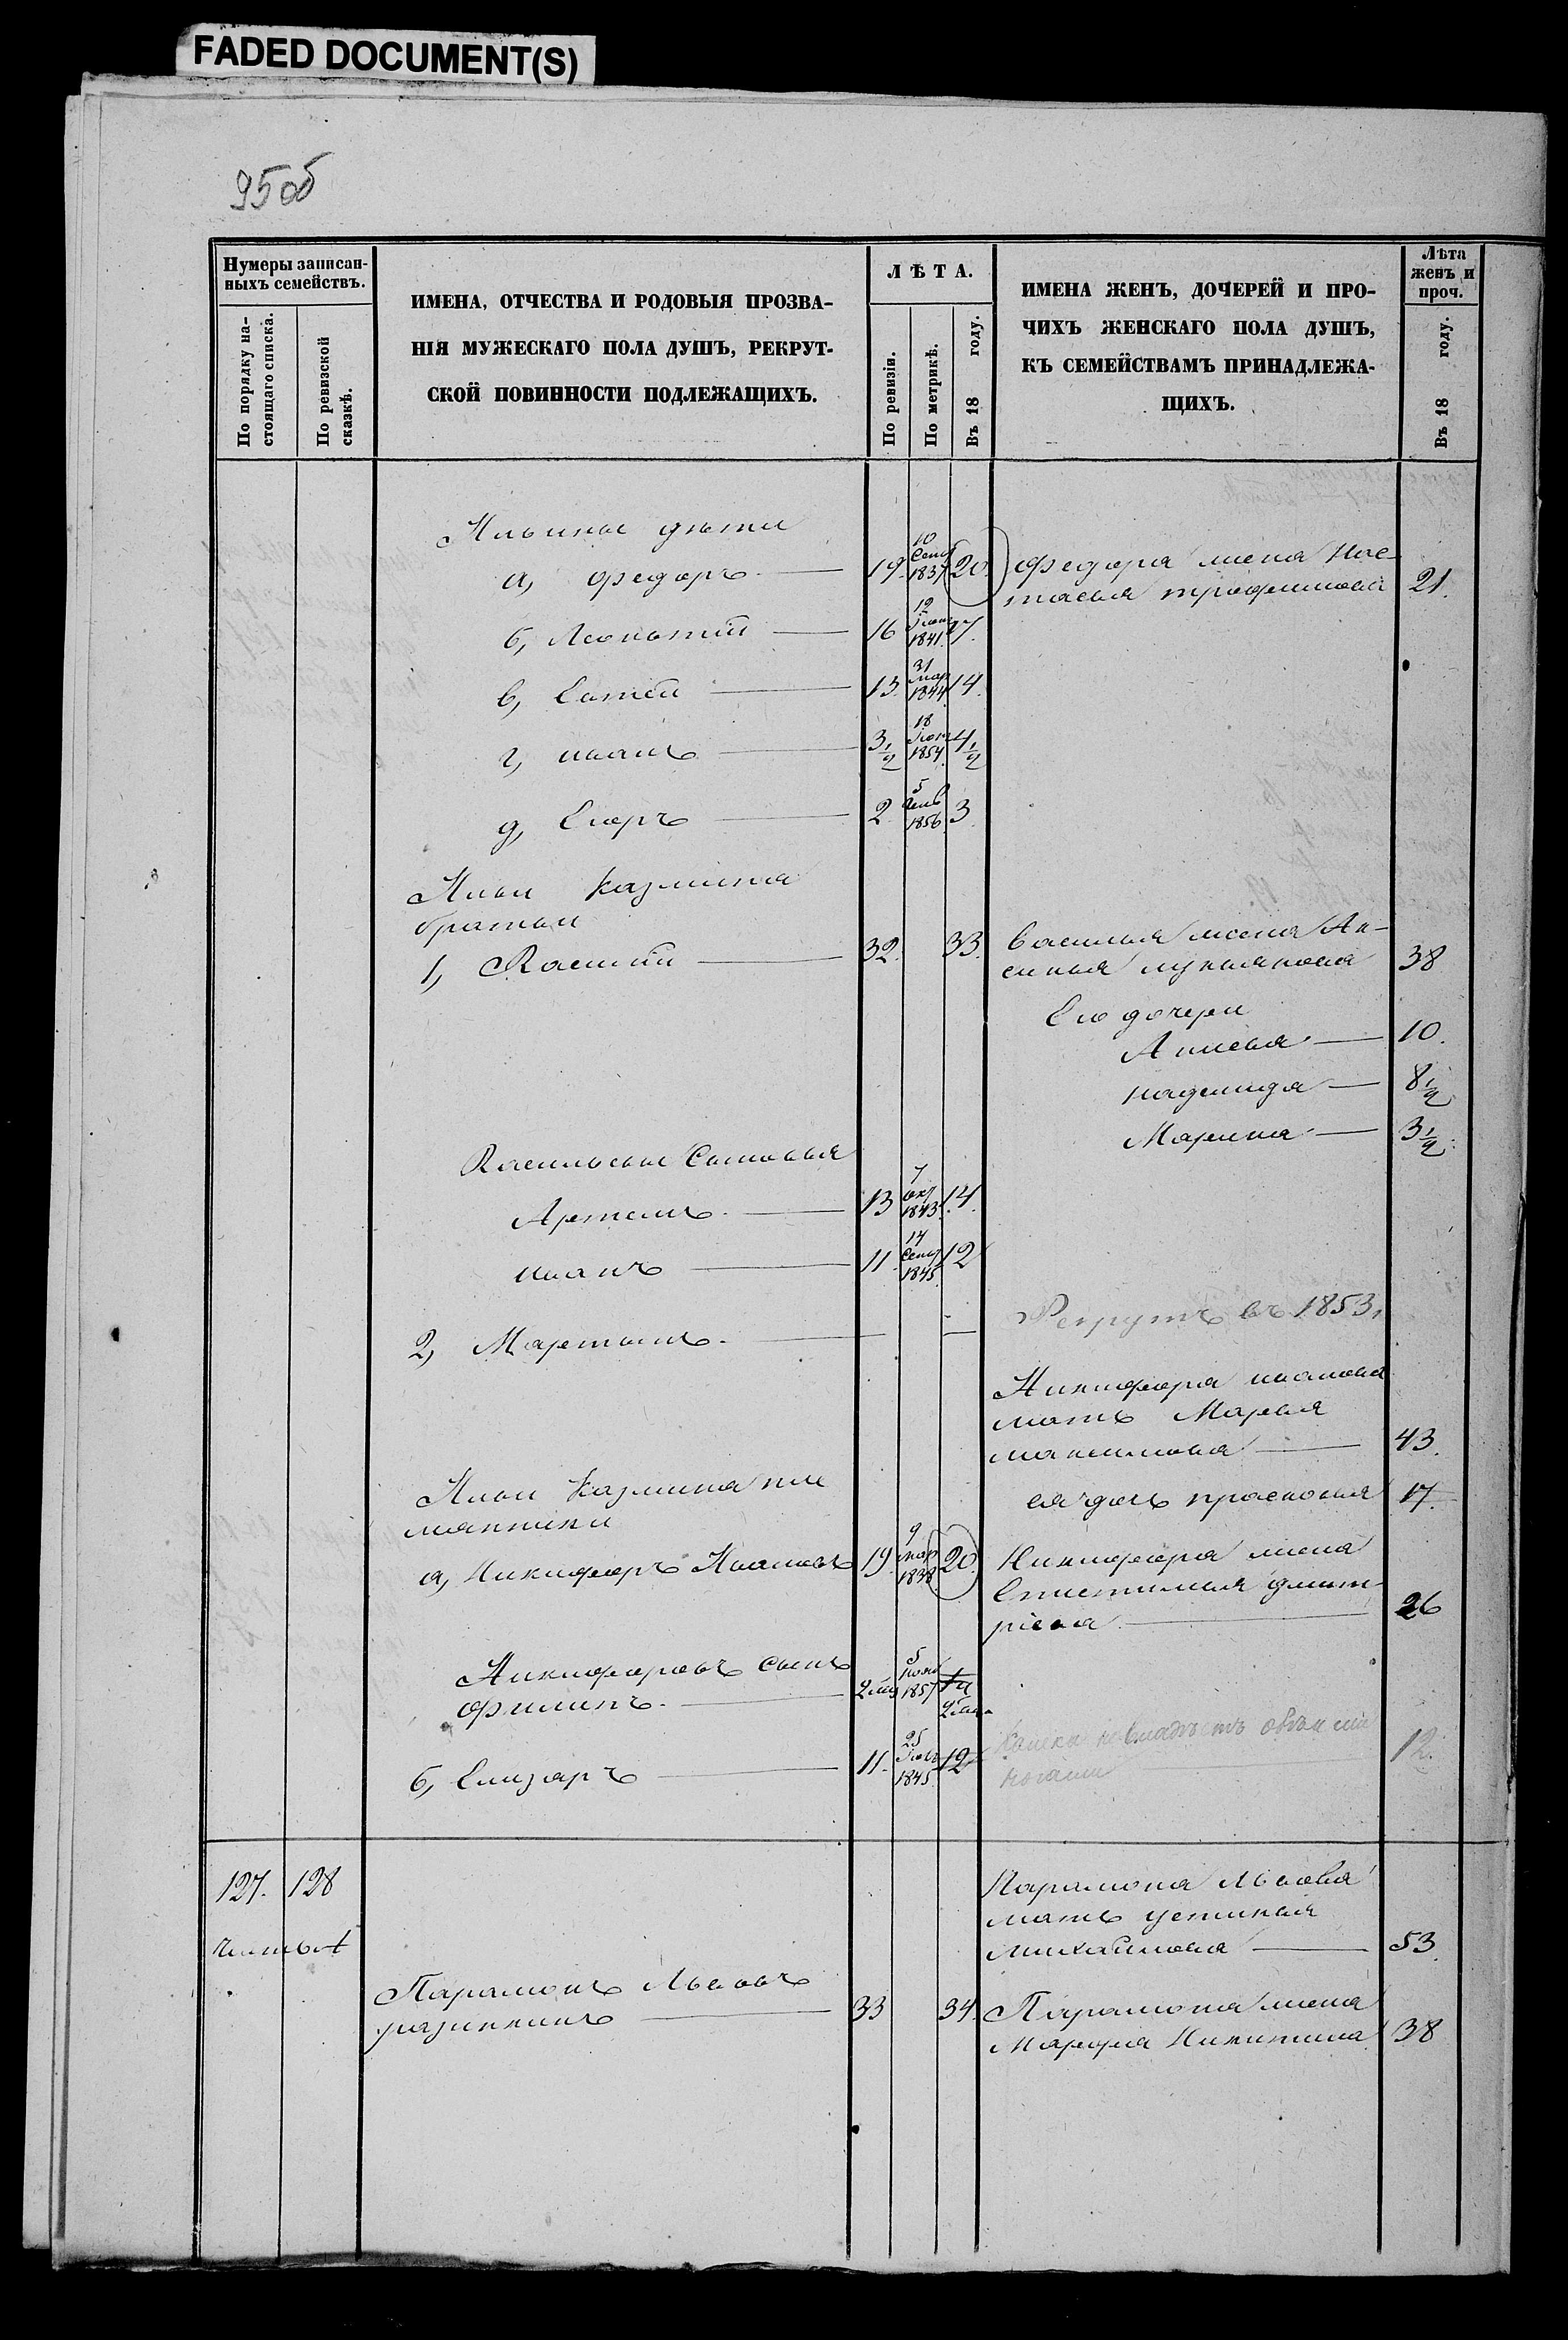 FADED DOCUMENT(S)
95 об
Нумеры записан-
ныхъ семействъ.
По порядку на-
стоящаго списка.
По ревизской
сказкѣ.
ИМЕНА, ОТЧЕСТВА И РОДОВЫЯ ПРОЗВА-
НІЯ МУЖЕСКАГО ПОЛА ДУШЪ, РЕКРУТ-
СКОЙ ПОВИННОСТИ ПОДЛЕЖАЩИХЪ.
ЛѢТА.
По ревизіи.
По метрикѣ.
Въ 18 году.
ИМЕНА ЖЕНЪ, ДОЧЕРЕЙ И ПРО-
ЧИХЪ ЖЕНСКАГО ПОЛА ДУШЪ,
КЪ СЕМЕЙСТВАМЪ ПРИНАДЛЕЖА-
ЩИХЪ.
Лѣта
женъ и
проч.
Въ 18 году.
Ильины дѣти
а, федоръ 19. 10 Сент 1837 20. федора жена Нас-
тасья трофимова 21.
б, Леонтий 16 12 1841 17.
в, Евтей 13. 31 Мар 1844 14.
г, иванъ 3 1/2 18 1854 4 1/2
д, Егоръ 2 5 Генв 1856 3
Ильи Казмина
братьи
1, Василий 32. 33. Василья жена Ак-
синья лукьянова 38
Его дочери
Анисья 10.
надежда 8 1/2
Марина 3 1/2
Васильевы Сыновья
Артемъ 13 7 окт 1843 14.
иванъ 11 14 Сент 1845 12
2, Мартынъ Рекрутъ въ 1853,
Никифора иванова
мать Марья
максимова 43.
Ильи Казмина пле
мянники
ея дочь прасковья 17.
а, Никифоръ Ивановъ 19. 9 мар 1838 20. Никифора жена
Епистимья дмит-
ріева 26
Никифоровъ сынъ
филипъ 2 5 нояб 1857
б, Елизаръ 11. 25 1845 12
ногами 12.
127. 128
Парамона Львова
мать устинья
михайлова 53
Парамонъ Львовъ
разинкинъ 33 34. Парамона жена
Марфа Никитина 38